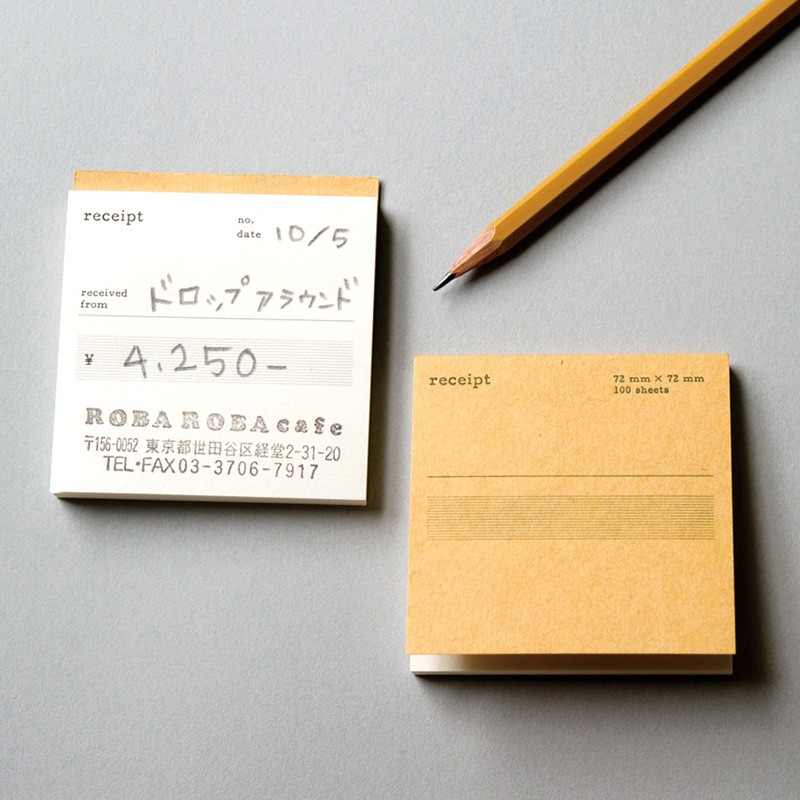 receipt
no.
date 10/5
received
from ドロップアラウンド
¥ 4.250-
ROBA ROBA cafe
〒156-0052 東京都世田谷区経堂2-31-20
TEL・FAX03-3706-7917
receipt
72 mm × 72 mm
100 sheets